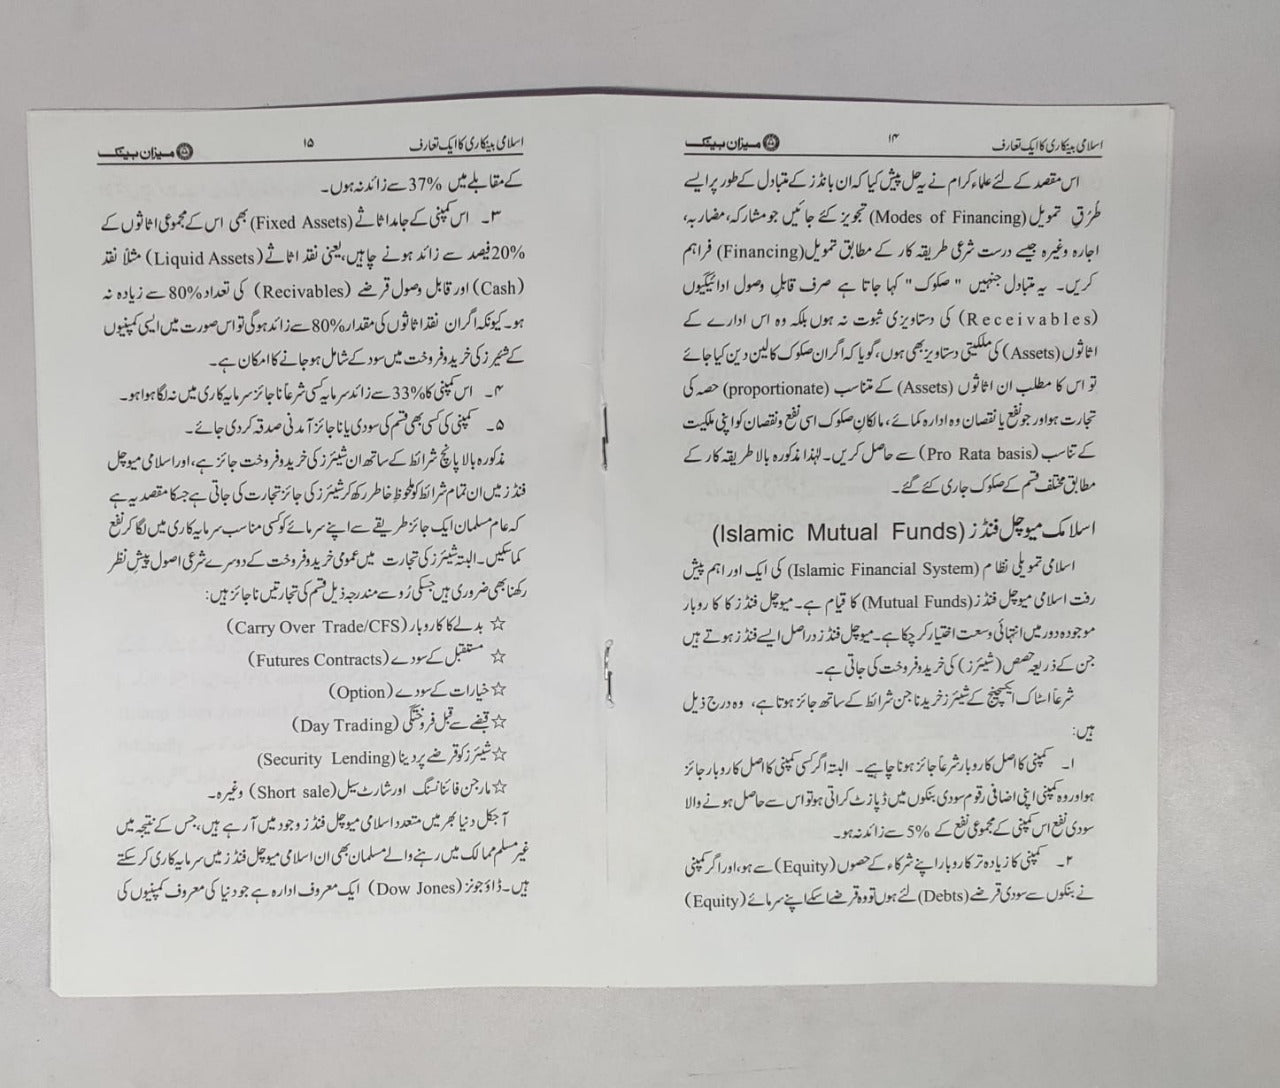 اسلامی بینکاری کا ایک تعارف ۱۴ میزان بینک
اس مقصد کے لئے علماء کرام نے یہ حل پیش کیا کہ ان بانڈز کے متبادل کے طور پر ایسے
طُرُقِ تمویل (Modes of Financing) تجویز کئے جائیں جو مشارکہ، مضاربہ،
اجارہ وغیرہ جیسے درست شرعی طریقہ کار کے مطابق تمویل (Financing) فراہم
کریں۔ یہ متبادل جنہیں " صکوک" کہا جاتا ہے صرف قابلِ وصول ادائیگیوں
(Receivables) کی دستاویزی ثبوت نہ ہوں بلکہ وہ اس ادارے کے
اثاثوں (Assets) کی ملکیتی دستاویز بھی ہوں، گویا کہ اگر ان صکوک کا لین دین کیا جائے
تو اس کا مطلب ان اثاثوں (Assets) کے متناسب (proportionate) حصہ کی
تجارت ہو اور جو نفع یا نقصان وہ ادارہ کمائے، مالکانِ صکوک اسی نفع و نقصان کو اپنی ملکیت
کے تناسب (Pro Rata basis) سے حاصل کریں۔ لہٰذا مذکورہ بالا طریقہ کار کے
مطابق مختلف قسم کے صکوک جاری کئے گئے۔
اسلامک میوچل فنڈز (Islamic Mutual Funds)
اسلامی تمویلی نظام (Islamic Financial System) کی ایک اور اہم پیش
رفت اسلامی میوچل فنڈز (Mutual Funds) کا قیام ہے۔ میوچل فنڈز کا کاروبار
موجودہ دور میں انتہائی وسعت اختیار کر چکا ہے۔ میوچل فنڈز دراصل ایسے فنڈز ہوتے ہیں
جن کے ذریعہ حصص (شیئرز) کی خرید و فروخت کی جاتی ہے۔
شرعاً اسٹاک ایکسچینج کے شیئرز خریدنا جن شرائط کے ساتھ جائز ہوتا ہے، وہ درج ذیل
ہیں:
۱۔ کمپنی کا اصل کاروبار شرعاً جائز ہونا چاہیے۔ البتہ اگر کسی کمپنی کا اصل کاروبار جائز
ہو اور وہ کمپنی اپنی اضافی رقوم سودی بنکوں میں ڈپازٹ کراتی ہو تو اس سے حاصل ہونے والا
سودی نفع اس کمپنی کے مجموعی نفع کے 5% سے زائد نہ ہو۔
۲۔ کمپنی کا زیادہ تر کاروبار اپنے شرکاء کے حصوں (Equity) سے ہو، اور اگر کمپنی
نے بنکوں سے سودی قرضے (Debts) لئے ہوں تو وہ قرضے اسکے اپنے سرمائے (Equity)
اسلامی بینکاری کا ایک تعارف ۱۵ میزان بینک
کے مقابلے میں 37% سے زائد نہ ہوں۔
۳۔ اس کمپنی کے جامد اثاثے (Fixed Assets) بھی اس کے مجموعی اثاثوں کے
20% فیصد سے زائد ہونے چاہیں، یعنی نقد اثاثے (Liquid Assets) مثلاً نقد
(Cash) اور قابل وصول قرضے (Recivables) کی تعداد 80% سے زیادہ نہ
ہو۔ کیونکہ اگر ان نقد اثاثوں کی مقدار 80% سے زائد ہوگی تو اس صورت میں ایسی کمپنیوں
کے شئیرز کی خرید و فروخت میں سود کے شامل ہو جانے کا امکان ہے۔
۴۔ اس کمپنی کا 33% سے زائد سرمایہ کسی شرعاً ناجائز سرمایہ کاری میں نہ لگا ہوا ہو۔
۵۔ کمپنی کی کسی بھی قسم کی سودی یا ناجائز آمدنی صدقہ کر دی جائے۔
مذکورہ بالا پانچ شرائط کے ساتھ ان شیئرز کی خرید و فروخت جائز ہے، اور اسلامی میوچل
فنڈز میں ان تمام شرائط کو ملحوظِ خاطر رکھ کر شیئرز کی جائز تجارت کی جاتی ہے جسکا مقصد یہ ہے
کہ عام مسلمان ایک جائز طریقے سے اپنے سرمائے کو کسی مناسب سرمایہ کاری میں لگا کر نفع
کما سکیں۔ البتہ شیئرز کی تجارت میں عمومی خرید و فروخت کے دوسرے شرعی اصول پیشِ نظر
رکھنا بھی ضروری ہیں جسکی رُو سے مندرجہ ذیل قسم کی تجارتیں ناجائز ہیں:
☆ بدلے کا کاروبار (Carry Over Trade/CFS)
☆ مستقبل کے سودے (Futures Contracts)
☆ خیارات کے سودے (Option)
☆ قبضے سے قبل فروختگی (Day Trading)
☆ شیئرز کو قرضے پر دینا (Security Lending)
☆ مارجن فائنانسنگ اور شارٹ سیل (Short sale) وغیرہ۔
آجکل دنیا بھر میں متعدد اسلامی میوچل فنڈز وجود میں آرہے ہیں، جس کے نتیجہ میں
غیر مسلم ممالک میں رہنے والے مسلمان بھی ان اسلامی میوچل فنڈز میں سرمایہ کاری کر سکتے
ہیں۔ ڈاؤ جونز (Dow Jones) ایک معروف ادارہ ہے جو دنیا کی معروف کمپنیوں کی